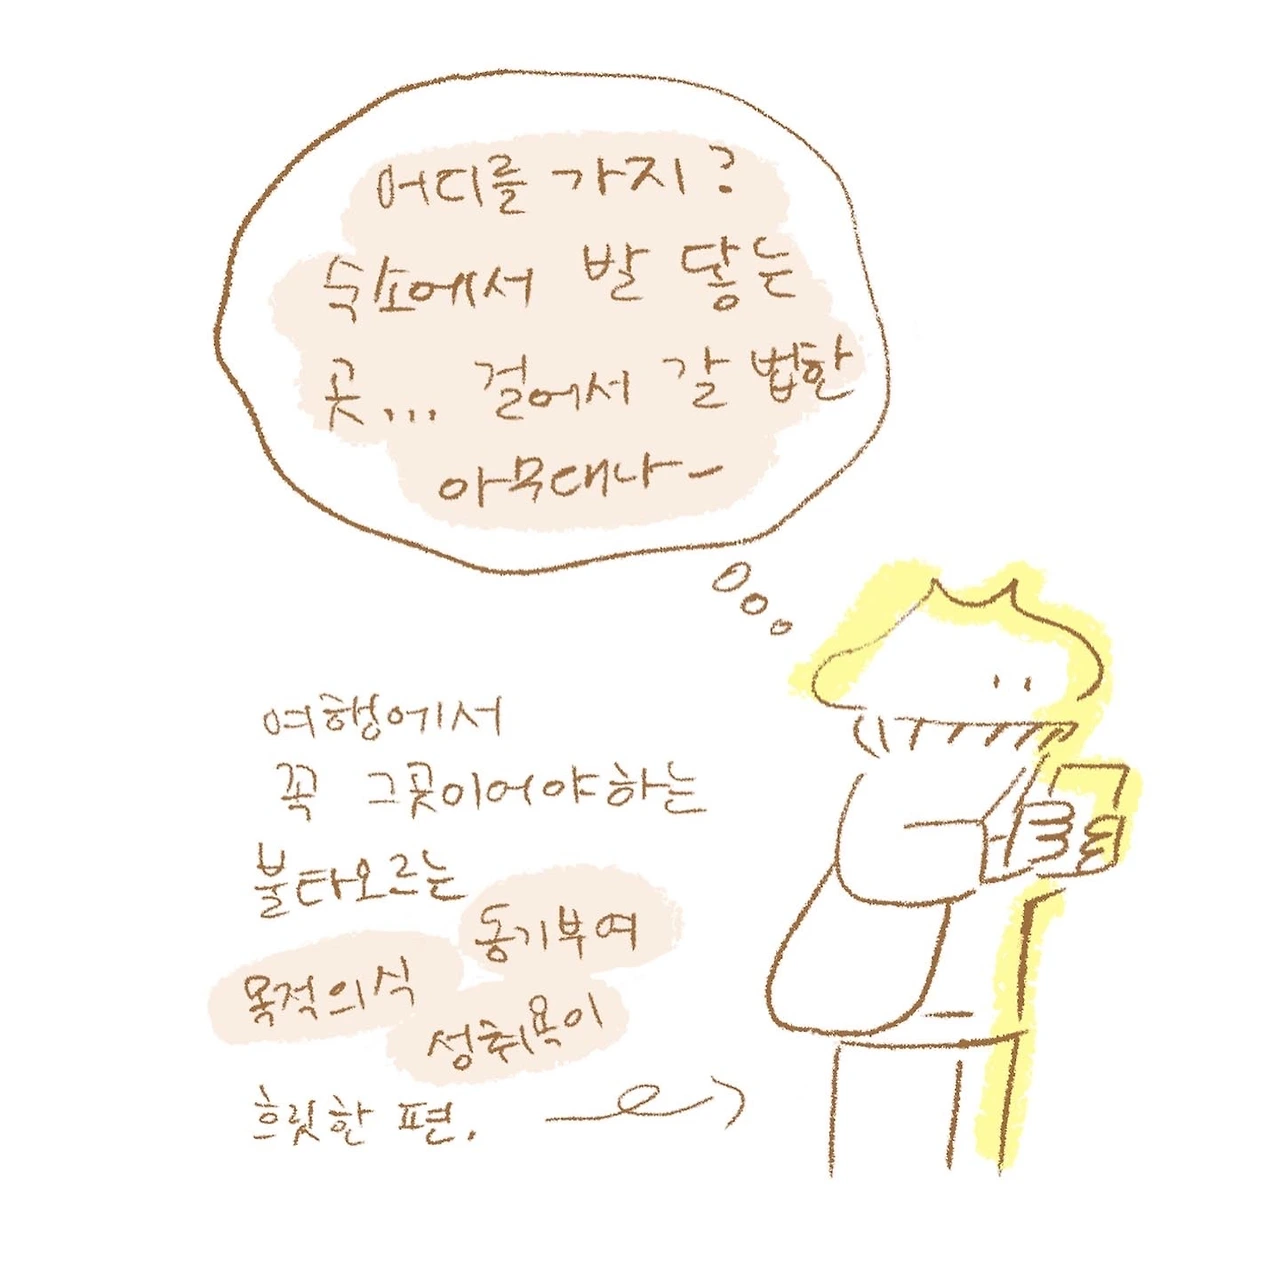 어디를 가지?
숙소에서 발 닿는
곳... 걸어서 갈 법한
아무대나-
여행에서
꼭 그곳이어야하는
불타오르는
동기부여
목적의식
성취욕이
흐릿한 편.